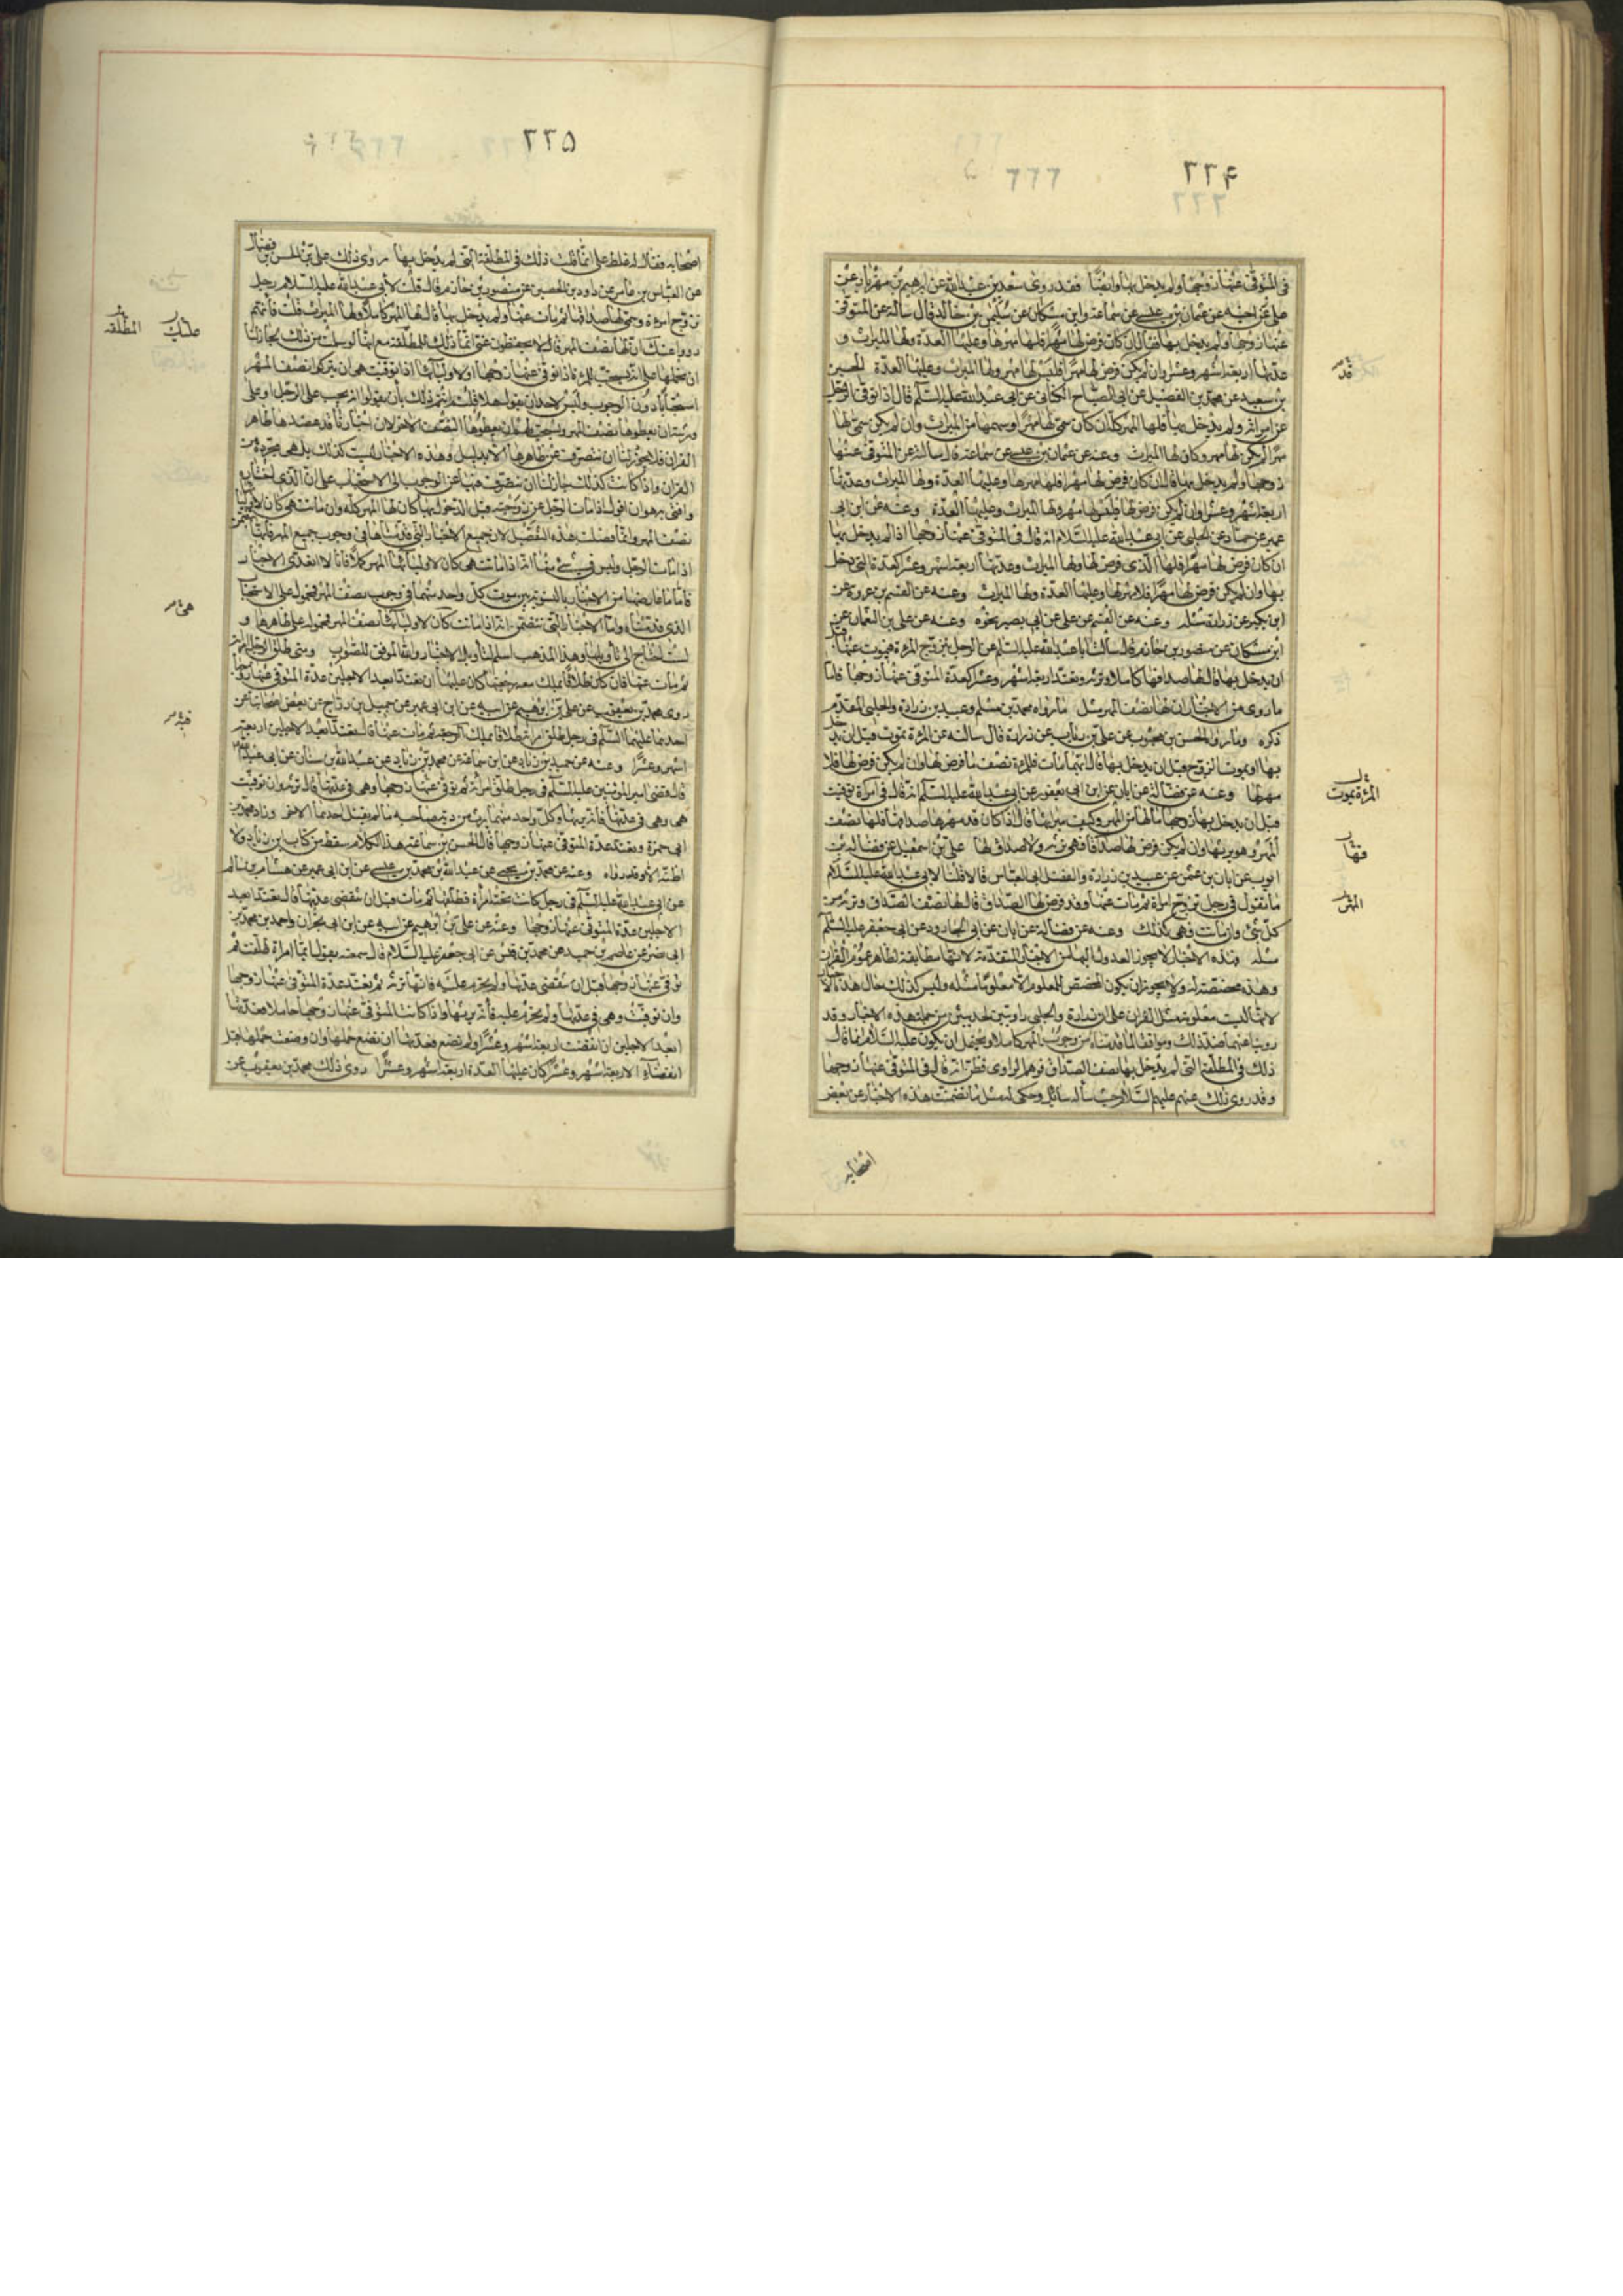 ٢٢۴
فى المتوفى عنها زوجها ولم يدخل بها وايضا فقد روى سعد بن عبد الله عن ابرهيم بن مهزيار عن
على عن اخيه عن عثمان بن عيسى عن سماعة وابن مسكان عن سليمن بن خالد قال سألته عن المتوفى
عنها زوجها ولم يدخل بها فقال ان كان فرض لها مهرا فلها مهرها وعليها العدة ولها الميراث و
عدتها اربعة اشهر وعشر وان لم يكن فرض لها مهرا فليس لها مهر ولها الميراث وعليها العدة الحسين
بن سعيد عن محمد بن الفضيل عن ابى الصباح الكنانى عن ابى عبد الله عليه السلم قال اذا توفى الرجل
عن امراته ولم يدخل بها فلها المهر كله ان كان سمى لها مهرا وسهمها من الميراث وان لم يكن سمى لها
مهرا لم يكن لها مهر وكان لها الميراث وعنه عن عثمان بن عيسى عن سماعة قال سالته عن المتوفى عنها
زوجها ولم يدخل بها فقال ان كان فرض لها مهرا فلها مهرها وعليها العدة ولها الميراث وعدتها
اربعة اشهر وعشرا وان لم يكن فرض لها فليس لها مهر ولها الميراث وعليها العدة وعنه عن ابن ابى
عمير عن حماد عن الحلبى عن ابى عبد الله عليه السلام انه قال فى المتوفى عنها زوجها اذا لم يدخل بها
ان كان فرض لها مهرا فلها الذى فرض لها ولها الميراث وعدتها اربعة اشهر وعشرا كعدة التى دخل
بها وان لم يكن فرض لها مهرا فلا مهر لها وعليها العدة ولها الميراث وعنه عن القسم بن عروة عن
ابن بكير عن زرارة مثله وعنه عن القسم عن على عن ابى بصير نحوه وعنه عن على بن النعمان عن
ابن مسكان عن منصور بن حازم قال سألت ابا عبد الله عليه السلم عن الرجل يتزوج المرءة فيموت عنها قبل
ان يدخل بها قال لها صداقها كاملا وترثه وتعتد اربعة اشهر وعشرا كعدة المتوفى عنها زوجها فاما
ما روى من الاخبار ان لها نصف المهر مثل ما رواه محمد بن مسلم وعبيد بن زرارة والحلبى المقدم
ذكره وما رواه الحسن بن محبوب عن على بن رئاب عن زرارة قال سالته عن المرءة تموت قبل ان يدخل
بها او يموت الزوج قبل ان يدخل بها قال ايهما مات فللمرءة نصف ما فرض لها وان لم يكن فرض لها فلا
مهر لها وعنه عن فضالة عن ابان عن ابن ابى يعفور عن ابى عبد الله عليه السلم انه قال فى امراة توفيت
قبل ان يدخل بها زوجها ما لها من المهر وكيف ميراثها فقال اذا كان قد مهرها صداقا فلها نصف
المهر وهو يرثها وان لم يكن فرض لها صداقا فهى ترثه ولا صداق لها على بن اسمعيل عن فضالة بن
ايوب عن ابان بن عثمن عن عبيد بن زرارة والفضل ابى العباس قالا قلنا لابى عبد الله عليه السلام
ما تقول فى رجل تزوج امراة ثم مات عنها وقد فرض لها الصداق قال لها نصف الصداق وترثه من
كل شئ وان ماتت فهى كذلك وعنه عن فضالة عن ابان عن ابى الجارود عن ابى جعفر عليه السلم
مثله فهذه الاخبار لا يجوز العدول اليها من الاخبار المتقدمة لانها مطابقة لظاهر عموم القران
وهذه مخصصة له ولا يجوز ان يكون المخصص للمعلوم الا معلوما مثله وليس كذلك حال هذه الاخبار
لانها ليست معلومة مثل القران على ان زرارة والحلبى راويين لحديثين من جملة هذه الاخبار وقد
روينا عنهما ضد ذلك وموافقا لما قدمناه من وجوب المهر كاملا ويحتمل ان يكون عليه السلام انما قال
ذلك فى المطلقة التى لم يدخل بها نصف الصداق فوهم الراوى فظن انه قال فى المتوفى عنها زوجها
وقد روى ذلك عنهم عليهم السلام حيث سأله سائل وحكى له مثل ما تضمنت هذه الاخبار عن بعض
اصحابه
المرءة تموت
فقال
المهر
٢٢۵
اصحابه فقال له غلط على انما قلت ذلك فى المطلقة التى لم يدخل بها روى ذلك على بن الحسن بن فضال
عن العباس بن عامر عن داود بن الحصين عن منصور بن حازم قال قلت لابى عبد الله عليه السلام رجل
تزوج امرءة وسمى لها صداقا ثم مات عنها ولم يدخل بها قال لها المهر كاملا ولها الميراث قلت فانهم
رووا عنك ان لها نصف المهر قال لا يحفظون عنى انما ذلك للمطلقة مع انها لو سلمت من ذلك لجاز لنا
ان نحملها على انه يستحب للمرءة اذا توفى عنها زوجها او لاوليائها اذا توفيت هى ان يتركوا نصف المهر
استحبابا دون الوجوب وليس لاحد ان يقول هلا قلتم انتم ذلك بأن تقولوا انه يجب على الرجل او على
ورثته ان يعطوها نصف المهر ويستحب لهم ان يعطوها النصف الاخر لان اخبارنا قد عضدها ظاهر
القران فلا يجوز لنا ان ننصرف عن ظاهرها الا بدليل وهذه الاخبار ليست كذلك بل هى مجردة من
القران واذا كانت كذلك جاز لنا ان ننصرف فيها عن الوجوب الى الاستحباب على ان الذى اختاره
وافتى به هو ان اقول اذا مات الرجل عن زوجته قبل الدخول بها كان لها المهر كله وان ماتت هى كان لاوليائها
نصف المهر وانما فصلت هذا التفصيل لان جميع الاخبار التى قدمناها فى وجوب جميع المهر فانها تتضمن
اذا مات الرجل وليس فى شئ منها انه اذا ماتت هى كان لاوليائها المهر كملا فانا لا اتعدى الاخبار
فاما ما عارضها من الاخبار بالتسوية بين موت كل واحد منهما فى وجوب نصف المهر فمحول على الاستحباب
الذى قدمناه واما الاخبار التى تتضمن انه اذا ماتت كان لاوليائها نصف المهر فمحول على ظاهرها و
لست احتاج الى تأويلها وهذا المذهب اسلم لتأويل الاخبار والله الموفق للصواب ومتى طلق الرجل امرءته
ثم مات عنها فان كان طلاقا يملك معه رجعتها كان عليها ان تعتد ابعد الاجلين عدة المتوفى عنها زوجها
روى محمد بن يعقوب عن على بن ابرهيم عن ابيه عن ابن ابى عمير عن جميل بن دراج عن بعض اصحابنا عن
احدهما عليهما السلم فى رجل طلق امراته طلاقا يملك الرجعة ثم مات عنها قال تعتد ابعد الاجلين اربعة
اشهر وعشرا وعنه عن حميد بن زياد عن ابن سماعة عن محمد بن زياد عن عبد الله بن سنان عن ابى عبد الله
قال قضى امير المؤمنين عليه السلم فى رجل طلق امرأته ثم توفى عنها زوجها وهى فى عدتها قال ترثه وان توفيت
هى وهى فى عدتها فانه يرثها وكل واحد منهما يرث من دية صاحبه ما لم يقتل احدهما الاخر وزاد محمد بن
ابى حمزة وتعتد عدة المتوفى عنها زوجها قال الحسن بن سماعة هذا الكلام سقط من كتاب ابن زياد ولا
اظنه الا وقد رواه وعنه عن محمد بن يحيى عن عبد الله بن محمد بن عيسى عن ابن ابى عمير عن هشام بن سالم
عن ابى عبد الله عليه السلم فى رجل كانت تحته امرأة فطلقها ثم مات قبل ان تنقضى عدتها قال تعتد ابعد
الاجلين عدة المتوفى عنها زوجها وعنه عن على بن ابرهيم عن ابيه عن ابن ابى نجران واحمد بن محمد بن
ابى نصر عن عاصم بن حميد عن محمد بن قيس عن ابى جعفر عليه السلام قال سمعته يقول ايما امراة طلقت ثم
توفى عنها زوجها قبل ان تنقضى عدتها ولم يحرم عليه فانها ترثه ثم تعتد عدة المتوفى عنها زوجها
وان توفيت وهى فى عدتها ولم يحرم عليه فأنه يرثها واذا كانت المتوفى عنها زوجها حاملا فعدتها
ابعد الاجلين ان انقضت اربعة اشهر وعشرا ولم تضع فعدتها ان تضع حملها وان وضعت حملها قبل
انقضاء الاربعة اشهر وعشرا كان عليها العدة اربعة اشهر وعشرا روى ذلك محمد بن يعقوب عن
المطلقة